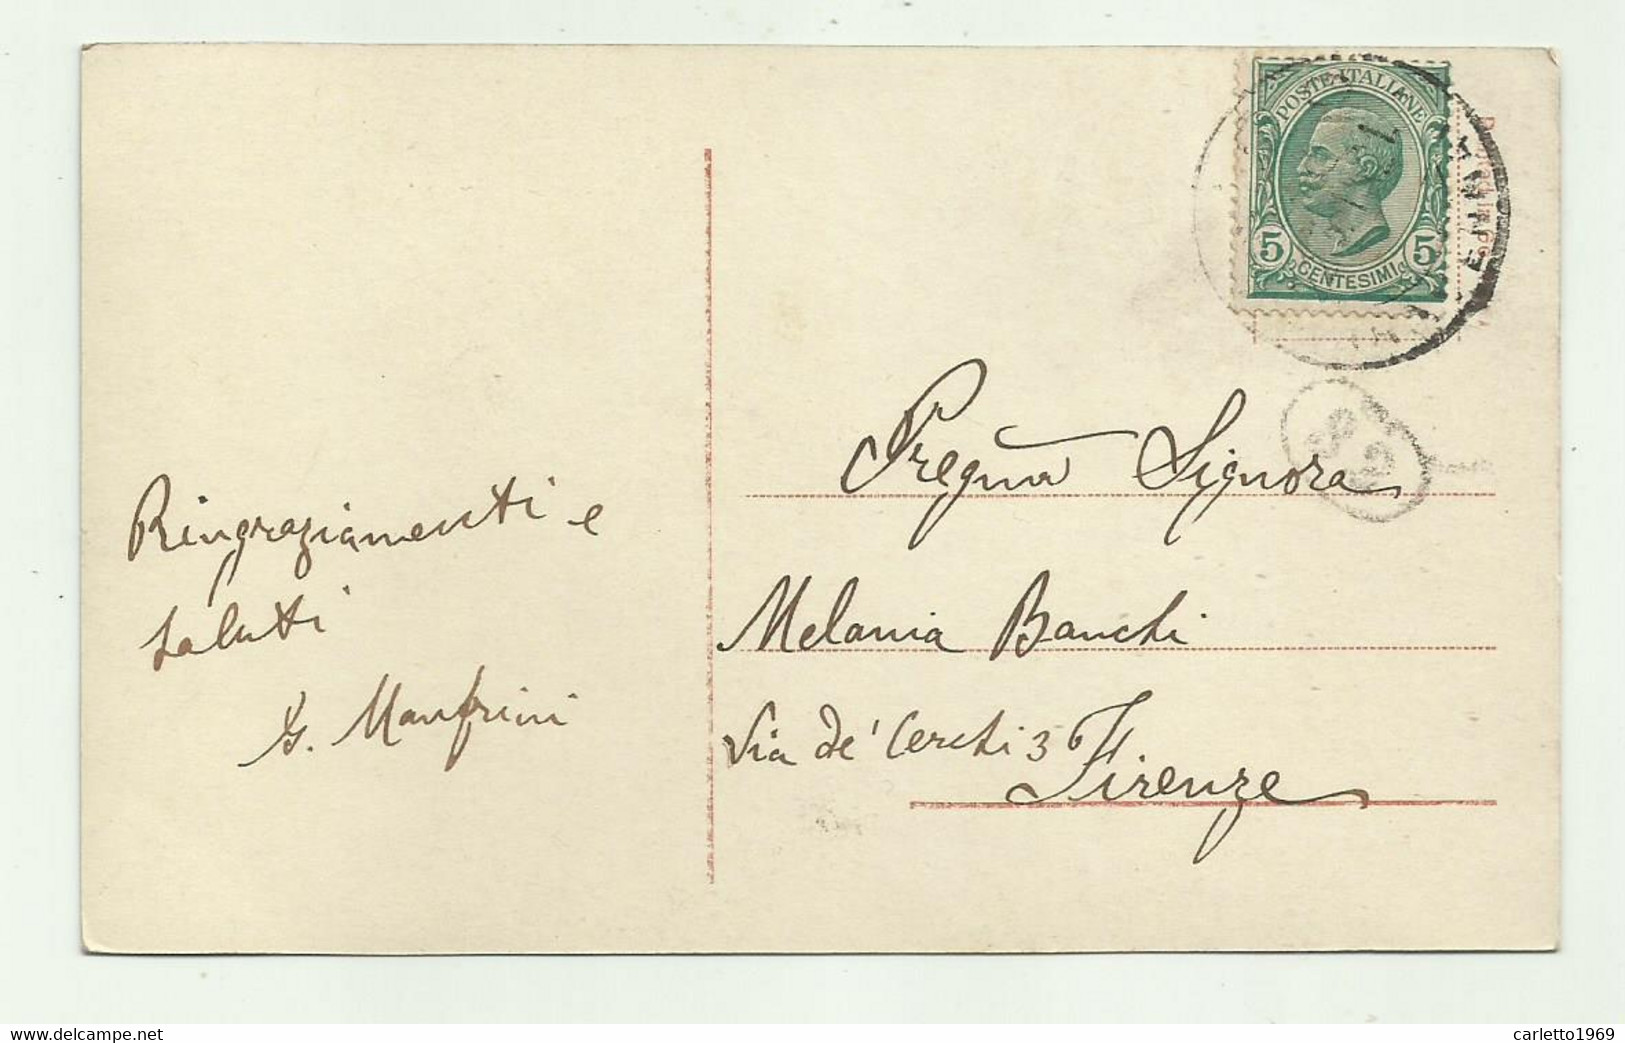 POSTE ITALIANE
5 CENTESIMI 5
Pregña Signora
Ringraziamenti e
saluti
G. Manfrini
Melania Banchi
Via de' Cerchi 3
Firenze
www.delcampe.net
carletto1969